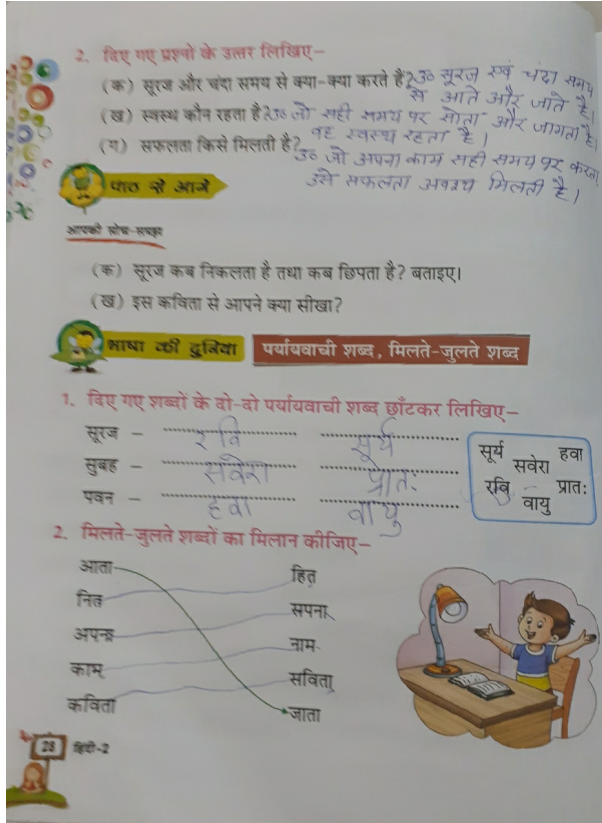 2. दिए गए प्रश्नों के उत्तर लिखिए–
(क) सूरज और चंदा समय से क्या-क्या करते हैं? उ० सूरज एवं चंदा समय
से आते और जाते है।
(ख) स्वस्थ कौन रहता है? उ० जो सही समय पर सोता और जागता है
वह स्वस्थ रहता है।
(ग) सफलता किसे मिलती है?
उ० जो अपना काम सही समय पर करता
उसे सफलता अवश्य मिलती है।
पाठ से आगे
आपकी सोच-समझ
(क) सूरज कब निकलता है तथा कब छिपता है? बताइए।
(ख) इस कविता से आपने क्या सीखा?
भाषा की दुनिया पर्यायवाची शब्द, मिलते-जुलते शब्द
1. दिए गए शब्दों के दो-दो पर्यायवाची शब्द छाँटकर लिखिए–
सूरज – रवि सूर्य
सुबह – सवेरा प्रातः
पवन – हवा वायु
सूर्य हवा
सवेरा
रवि प्रातः
वायु
2. मिलते-जुलते शब्दों का मिलान कीजिए–
आता हित
नित सपना
अपना नाम
काम सविता
कविता जाता
28 हिंदी-2